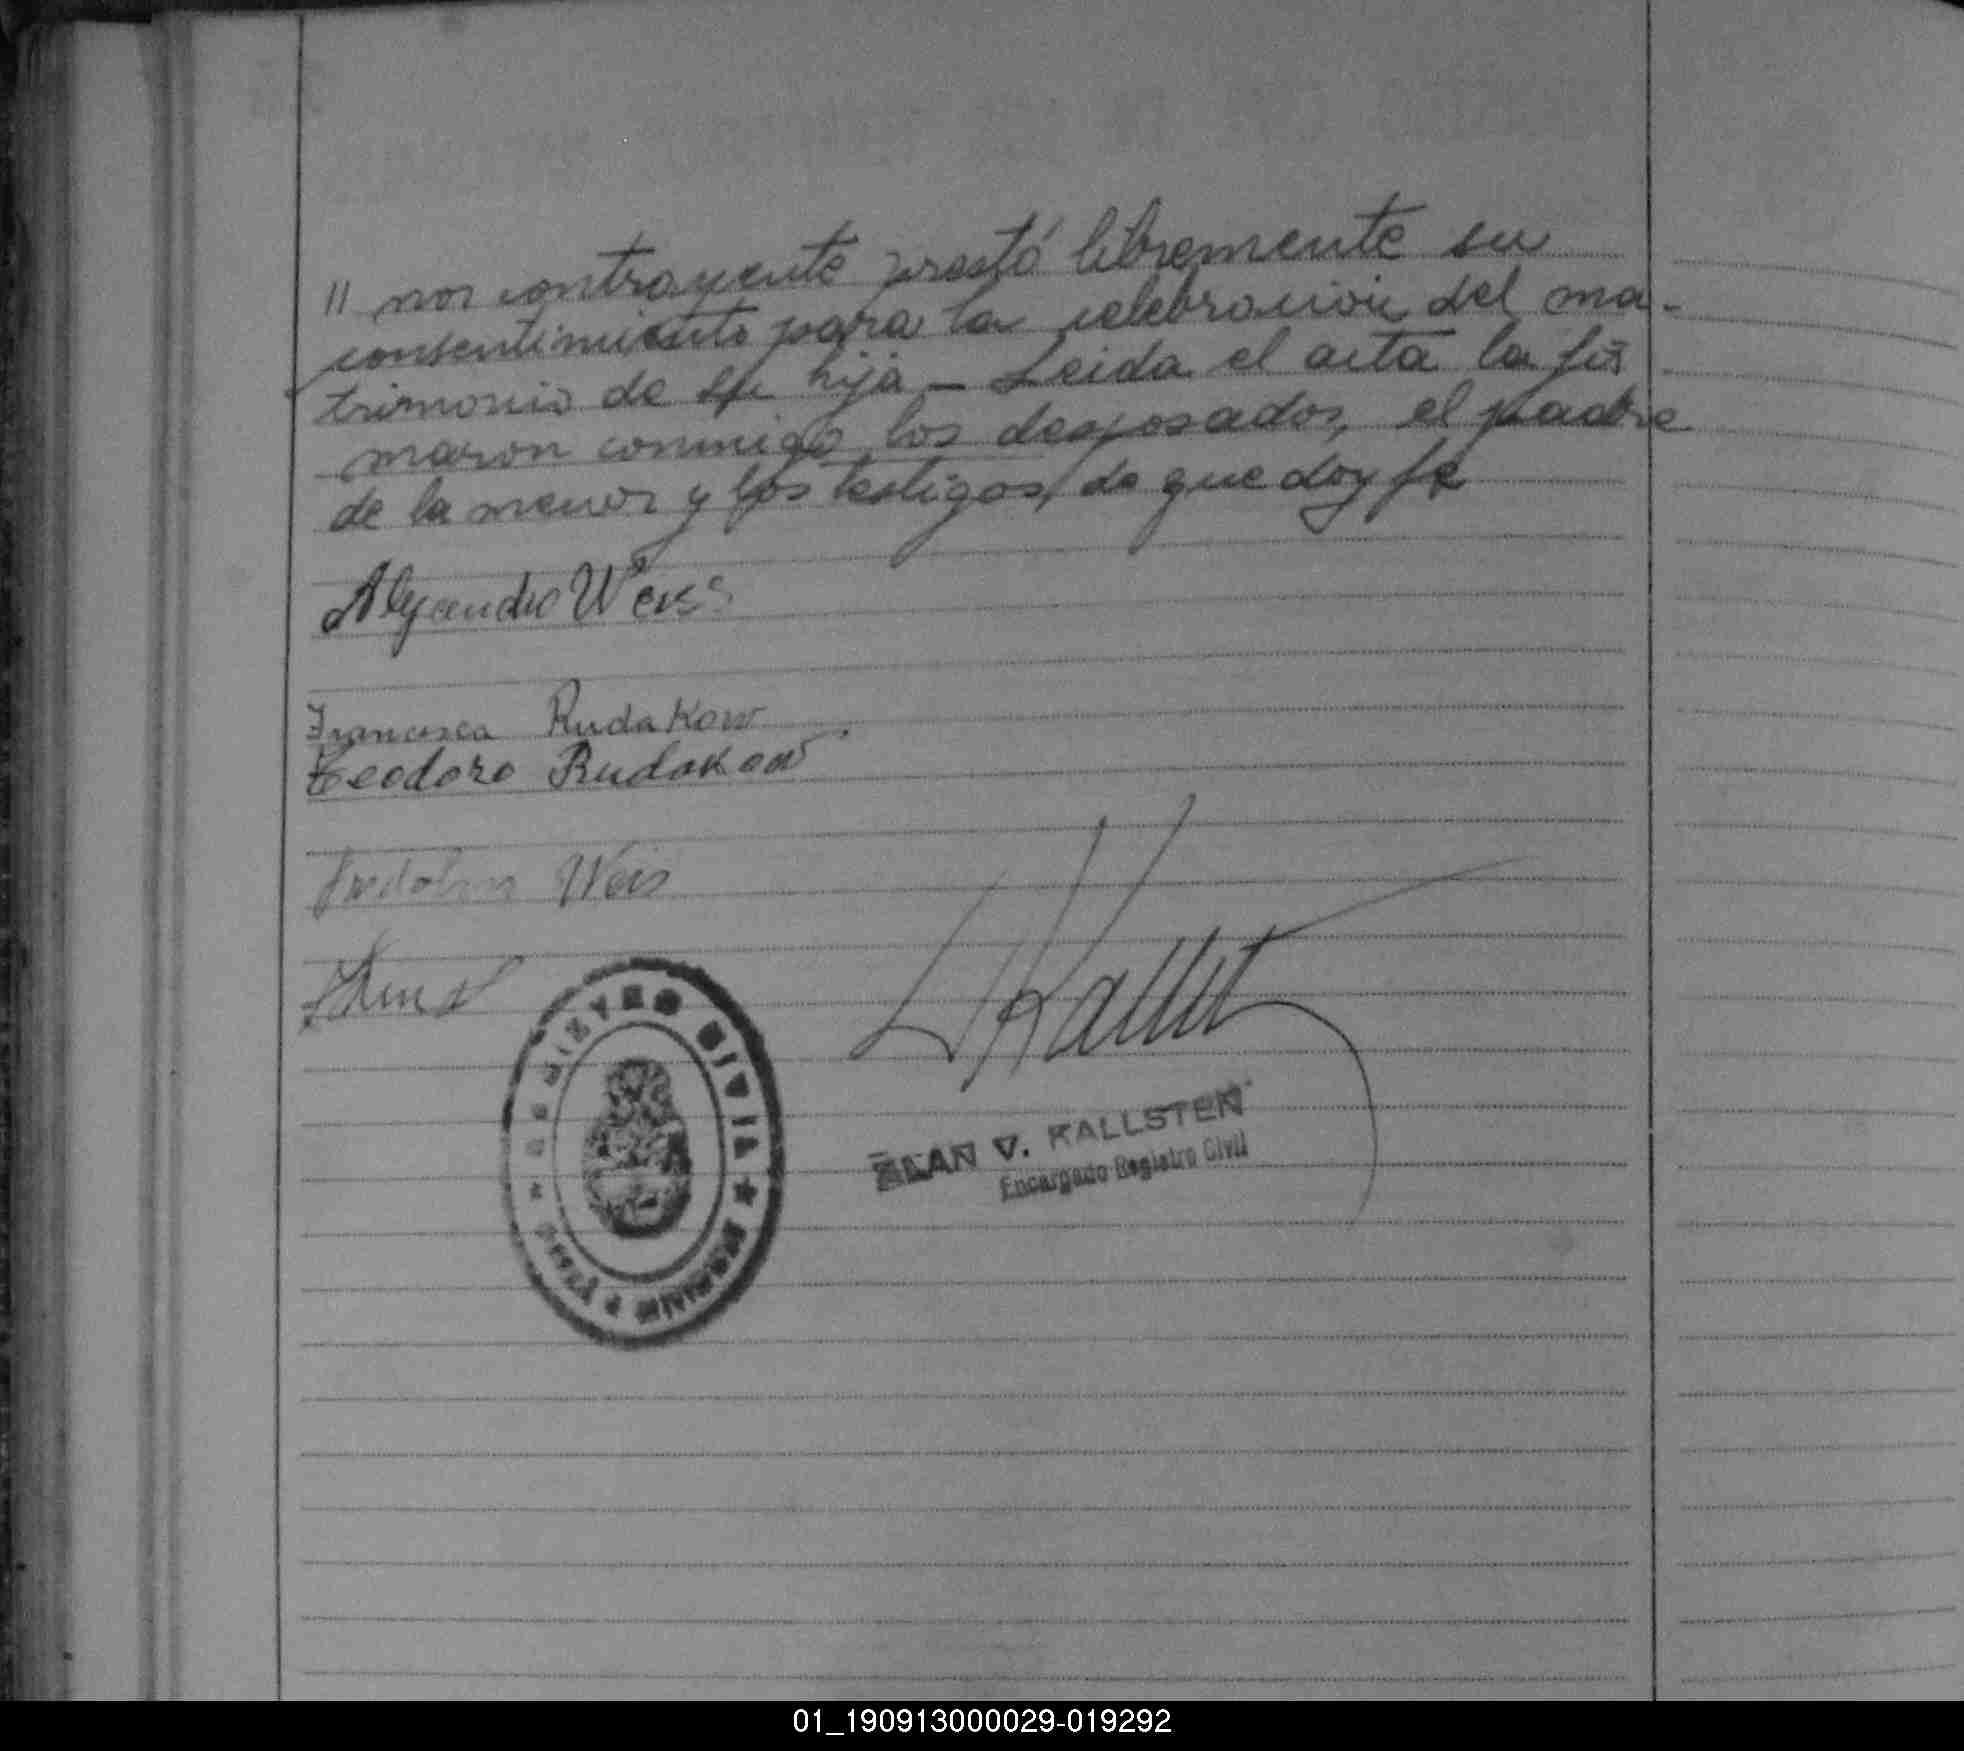 " nor contrayente prestó libremente su
consentimiento para la celebración del ma-
trimonio de su hija - Leida el acta la fir
maron conmigo los desposados, el padre
de la menor y los testigos, de que doy fe
Alejandro Weiss
Francisca Rudakow
Teodoro Rudakow
Weis
REGISTRO CIVIL
LKallst
ELAN V. KALLSTEN
Encargado Registro Civil
01_190913000029-019292